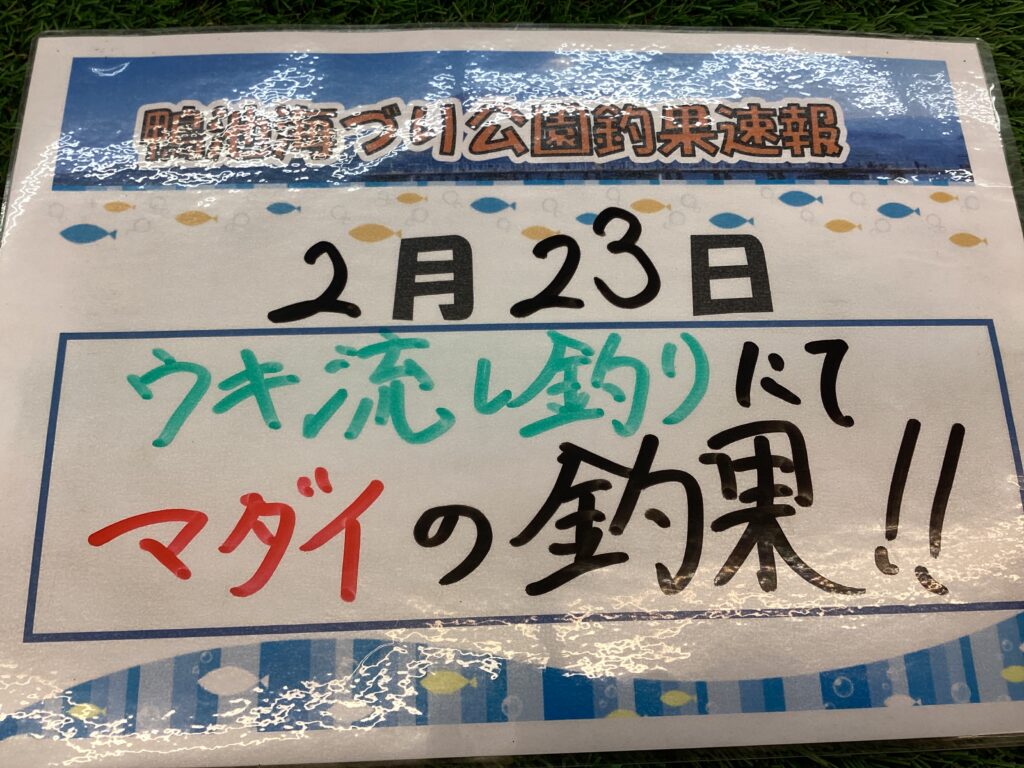 鴨池海づり公園釣果速報
2月23日
ウキ流し釣りにて
マダイの釣果!!